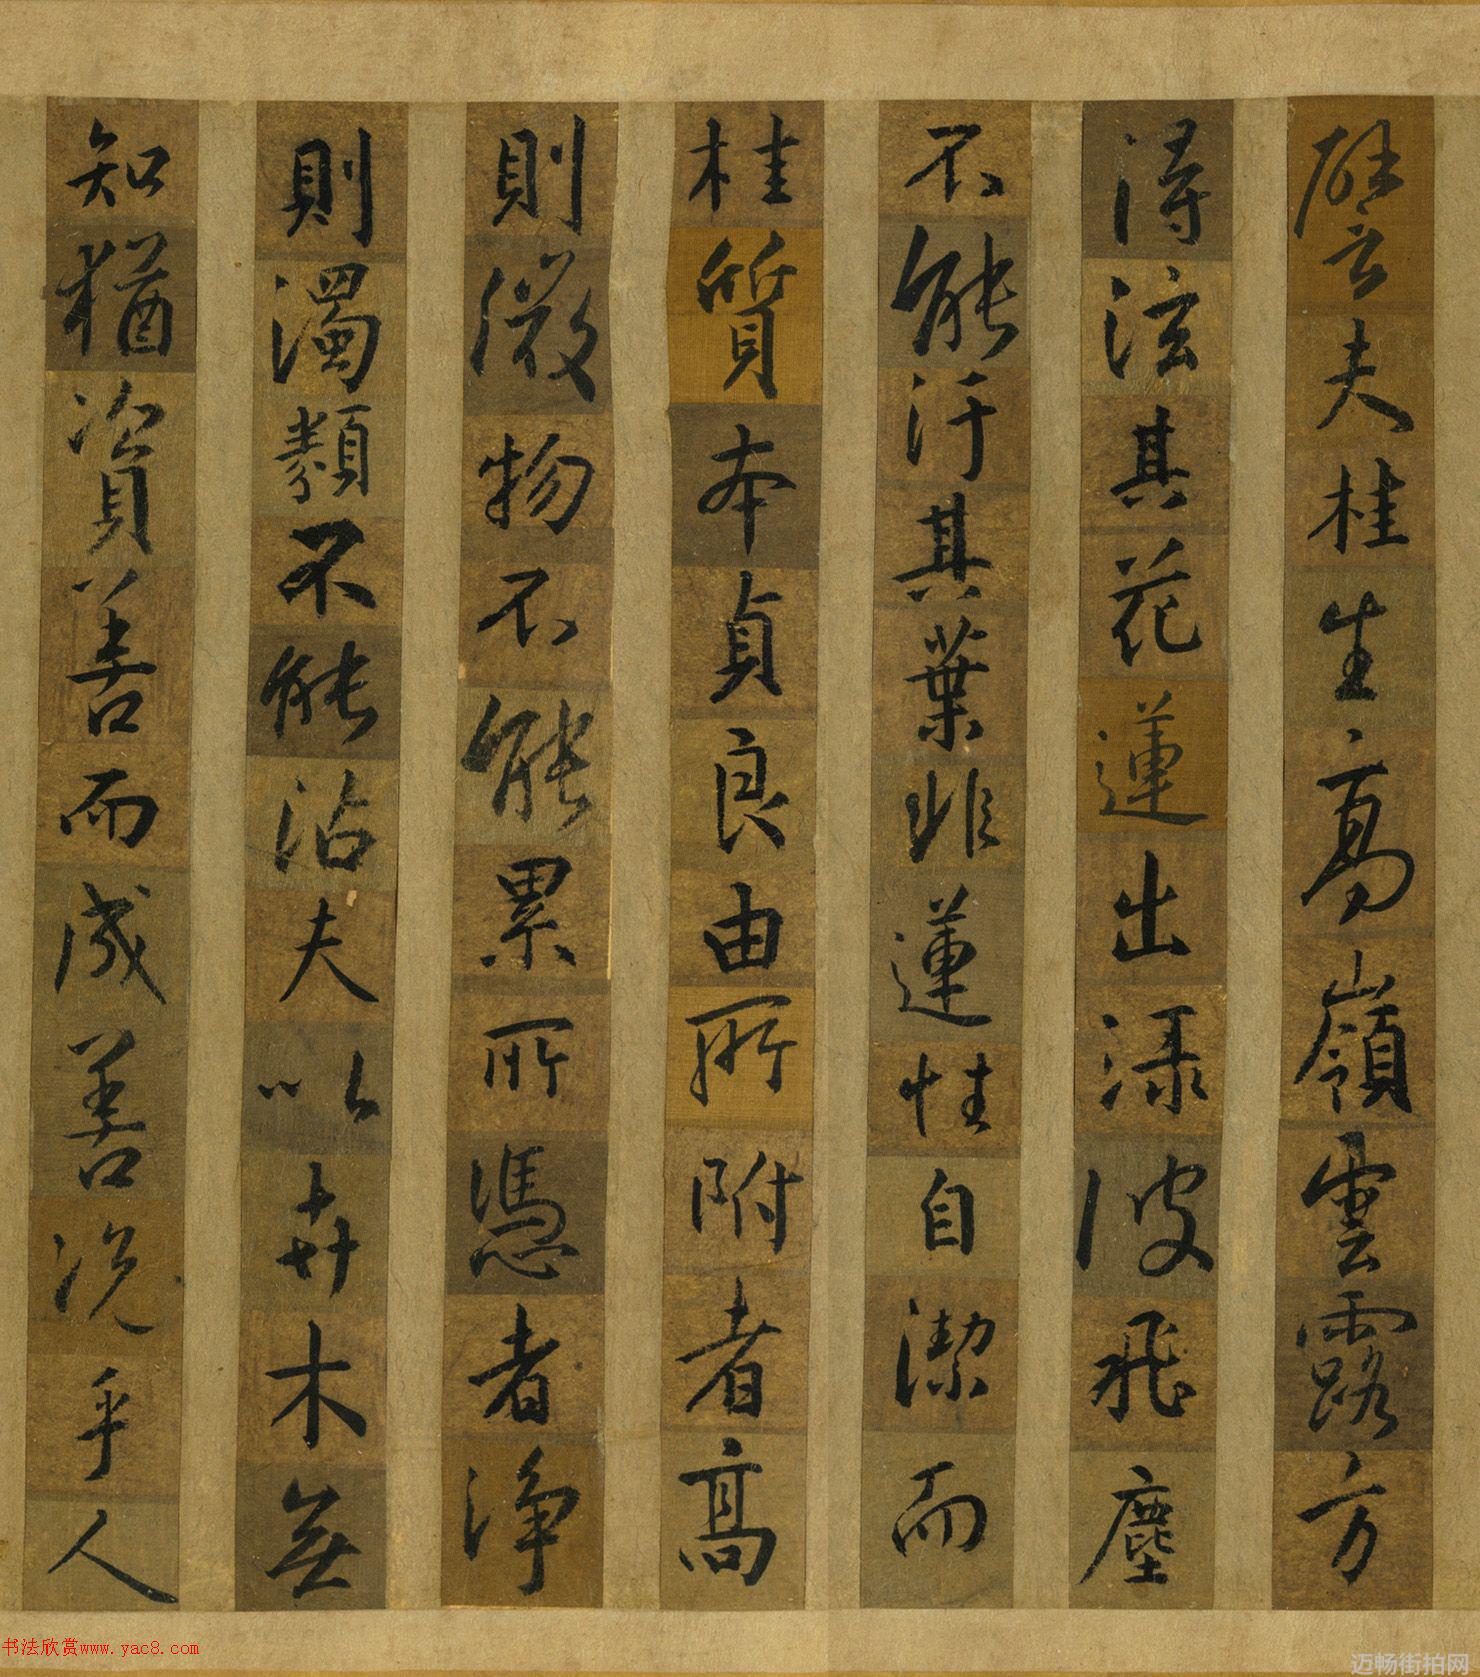 譬夫桂生高嶺雲露方
得泫其花蓮出淥波飛塵
不能汙其葉非蓮性自潔而
桂質本貞良由所附者高
則微物不能累所憑者淨
則濁類不能沾夫以卉木無
知猶資善而成善況乎人
书法欣赏www.yac8.com
迈畅街拍网